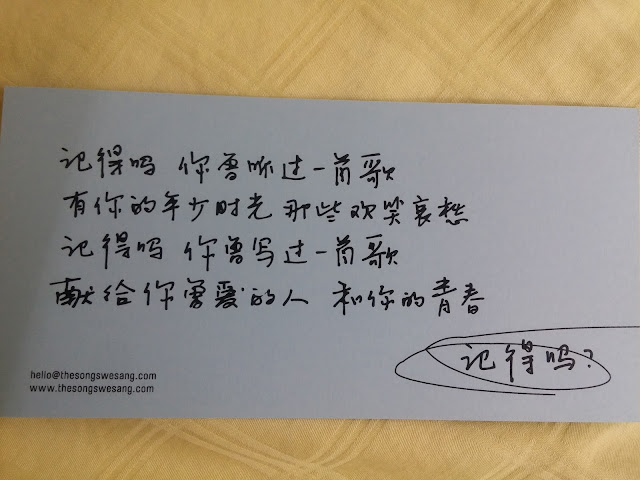 记得吗 你曾听过一首歌
有你的年少时光 那些欢笑哀愁
记得吗 你曾写过一首歌
献给你曾爱的人 和你的青春
记得吗?
hello@thesongswesang.com
www.thesongswesang.com